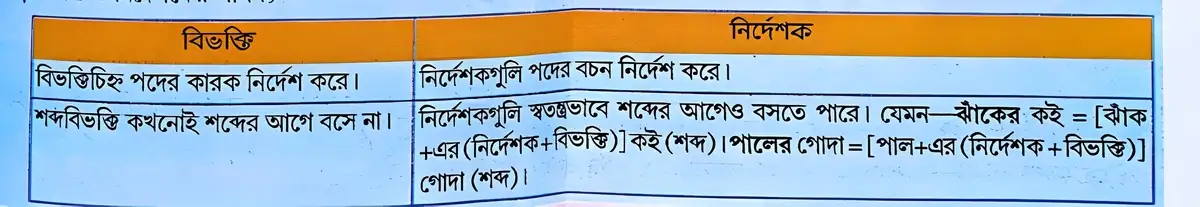 বিভক্তি
নির্দেশক
বিভক্তিচিহ্ন পদের কারক নির্দেশ করে।
নির্দেশকগুলি পদের বচন নির্দেশ করে।
শব্দবিভক্তি কখনোই শব্দের আগে বসে না।
নির্দেশকগুলি স্বতন্ত্রভাবে শব্দের আগেও বসতে পারে। যেমন—ঝাঁকের কই = [ঝাঁক
+এর (নির্দেশক+বিভক্তি)] কই (শব্দ)। পালের গোদা = [পাল+এর (নির্দেশক + বিভক্তি)]
গোদা (শব্দ)।